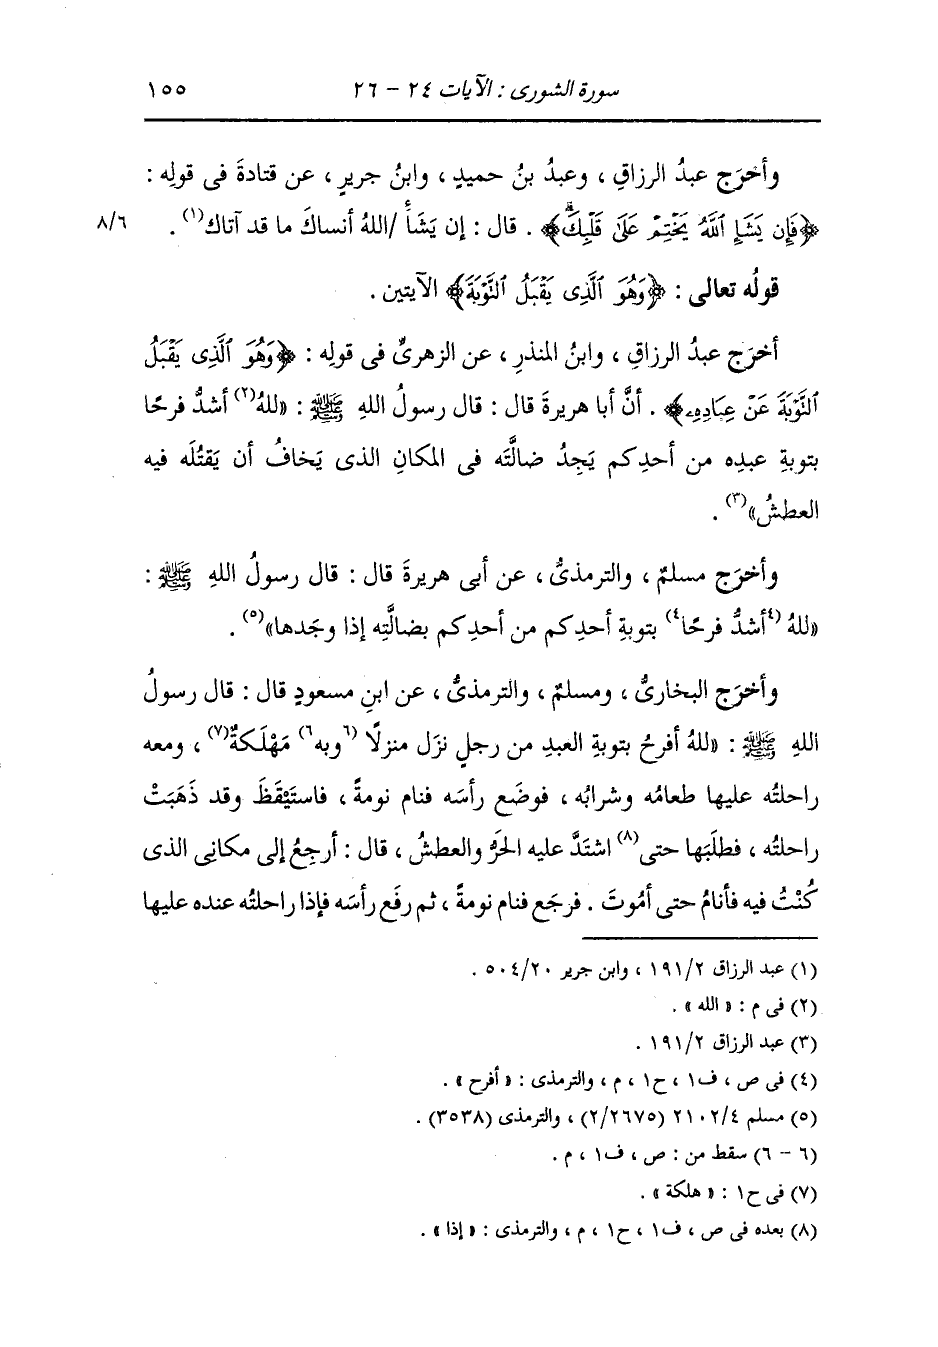 سورة الشورى : الآيات ٢٤ - ٢٦ ١٥٥
وأخرَج عبدُ الرزاقِ ، وعبدُ بنُ حميدٍ ، وابنُ جريرٍ ، عن قتادةَ فى قولِه :
﴿فَإِن يَشَإِ ٱللَّهُ يَخْتِمْ عَلَىٰ قَلْبِكَۗ﴾ . قال : إن يَشَأْ /اللهُ أنساكَ ما قد آتاك(١) . ٨/٦
قولُه تعالى : ﴿وَهُوَ ٱلَّذِى يَقْبَلُ ٱلتَّوْبَةَ﴾ الآيتين .
أخرَج عبدُ الرزاقِ ، وابنُ المنذرِ ، عن الزهرىِّ فى قولِه : ﴿وَهُوَ ٱلَّذِى يَقْبَلُ
ٱلتَّوْبَةَ عَنْ عِبَادِهِۦ﴾ . أنَّ أبا هريرةَ قال : قال رسولُ اللهِ ﷺ : «للهُ(٢) أشدُّ فرحًا
بتوبةِ عبدِه من أحدِكم يَجِدُ ضالَّتَه فى المكانِ الذى يَخافُ أن يَقتُلَه فيه
العطشُ»(٣) .
وأخرَج مسلمٌ ، والترمذىُّ ، عن أبى هريرةَ قال : قال رسولُ اللهِ ﷺ :
«للهُ (٤أشدُّ فرحًا٤) بتوبةِ أحدِكم من أحدِكم بضالَّتِه إذا وجَدها»(٥) .
وأخرَج البخارىُّ ، ومسلمٌ ، والترمذىُّ ، عن ابنِ مسعودٍ قال : قال رسولُ
اللهِ ﷺ : «للهُ أفرحُ بتوبةِ العبدِ من رجلٍ نزَل منزلًا (٦وبه٦) مَهْلَكةٌ(٧) ، ومعه
راحلتُه عليها طعامُه وشرابُه ، فوضَع رأسَه فنام نومةً ، فاستَيْقَظَ وقد ذَهَبَتْ
راحلتُه ، فطلَبَها حتى(٨) اشتَدَّ عليه الحَرُّ والعطشُ ، قال : أرجِعُ إلى مكانِى الذى
كُنْتُ فيه فأنامُ حتى أمُوتَ . فرجَع فنام نومةً ، ثم رفَع رأسَه فإذا راحلتُه عنده عليها
(١) عبد الرزاق ١٩١/٢ ، وابن جرير ٥٠٤/٢٠ .
(٢) فى م : « الله » .
(٣) عبد الرزاق ١٩١/٢ .
(٤) فى ص ، ف١ ، ح١ ، م ، والترمذى : « أفرح » .
(٥) مسلم ٢١٠٢/٤ (٢/٢٦٧٥) ، والترمذى (٣٥٣٨) .
(٦ - ٦) سقط من : ص ، ف١ ، م .
(٧) فى ح١ : « هلكة » .
(٨) بعده فى ص ، ف١ ، ح١ ، م ، والترمذى : « إذا » .